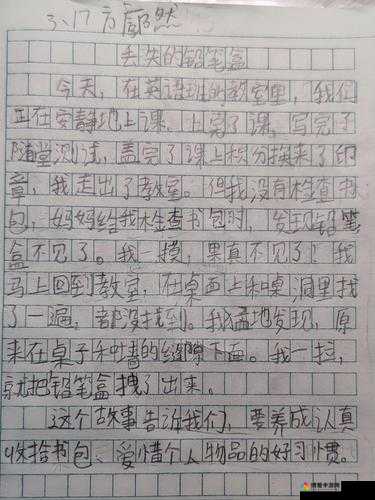 3.17 方鄺然
丢失的铅笔盒
今天，在英语班的教室里，我们
正在安静地上课。上完了课，写完了
随堂测试，盖完了课上积分换来了印
章，我走出了教室。但我没有检查书
包，妈妈给我检查书包时，发现铅笔
盒不见了。我一摸，果真不见了！我
马上回到教室，在桌面上和桌洞里找
了一遍，都没找到。我猛地发现，原
来在桌子和墙的缝隙下面。我一拉，
就把铅笔盒拽了出来。
这个故事告诉我们，要养成认真
收拾书包、爱惜个人物品的好习惯。